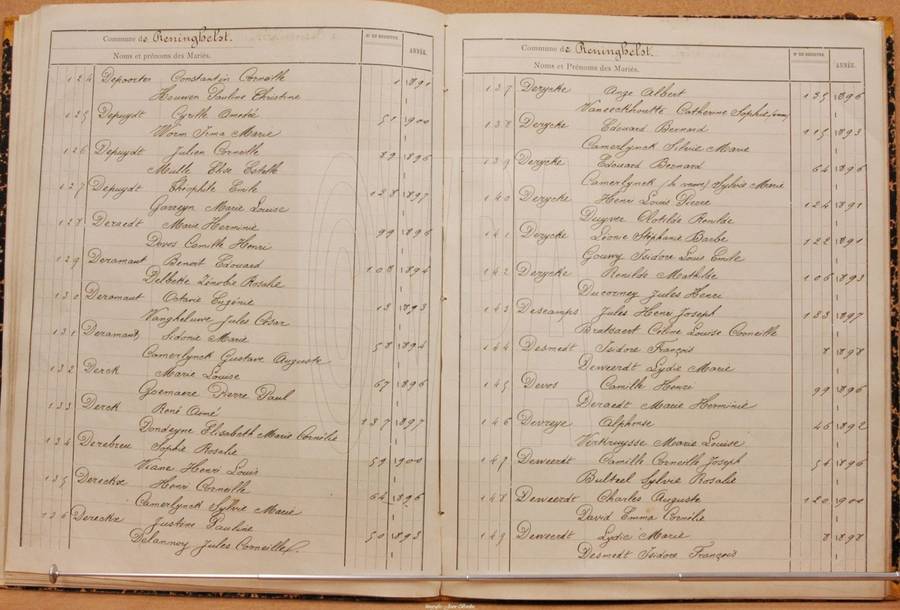 Commune de Reninghelst.
Noms et prénoms des Mariés.
N° DU REGISTRE
ANNÉE.
124 Depoorter Constantin Corneille 1 1891
Heuwen Pauline Christine
125 Depuydt Cyrille Amedé 51 1900
Worm Irma Marie
126 Depuydt Julien Corneille 89 1896
Meulle Elise Estelle
127 Depuydt Théophile Emile 128 1897
Garreyn Marie Louise
128 Deraedt Marie Herminie 99 1896
Devos Camille Henri
129 Deramaut Benoit Edouard 108 1894
Delbecke Zénobie Rosalie
130 Deramaut Octavie Eugénie 13 1893
Vangheluwe Jules César
131 Deramaut, Sidonie Marie 58 1894
Camerlynck Gustave Auguste
132 Derck Marie Louise 67 1896
Goemaere Pierre Paul
133 Derck René Aimé 137 1897
Dondeyne Elisabeth Marie Cornélie
134 Derebreu Sophie Rosalie 59 1900
Viane Henri Louis
135 Dereckx Henri Corneille 64 1896
Camerlynck Sylvie Marie
136 Dereckx Justine Pauline 50 1893
Delannoy Jules Corneille
Commune de Reninghelst.
Noms et Prénoms des Mariés.
N° DU REGISTRE
ANNÉE.
137 Derycke Ange Albert 135 1896
Vaneeckhoutte Catherine Sophie
138 Derycke Edouard Bernard 115 1893
Camerlynck Silvie Marie
139 Derycke Edouard Bernard 64 1896
Camerlynck Sylvie Marie
140 Derycke Henri Louis Pierre 124 1891
Duyver Clotilde Renilde
141 Derycke Léonie Stéphanie Barbe 122 1891
Gouwy Isidore Louis Emile
142 Derycke Renilde Mathilde 106 1893
Ducorney Jules Henri
143 Descamps Jules Henri Joseph 133 1897
Braksaert Céline Louise Corneille
144 Desmedt Isidore François 8 1898
Deweerdt Lydie Marie
145 Devos Camille Henri 99 1896
Deraedt Marie Herminie
146 Devreye Alphonse 46 1892
Verkruysse Marie Louise
147 Deweerdt Camille Corneille Joseph 54 1896
Bulteel Sylvie Rosalie
148 Deweerdt Charles Auguste 120 1900
David Emma Cornélie
149 Deweerdt Lydie Marie 8 1898
Desmedt Isidore François